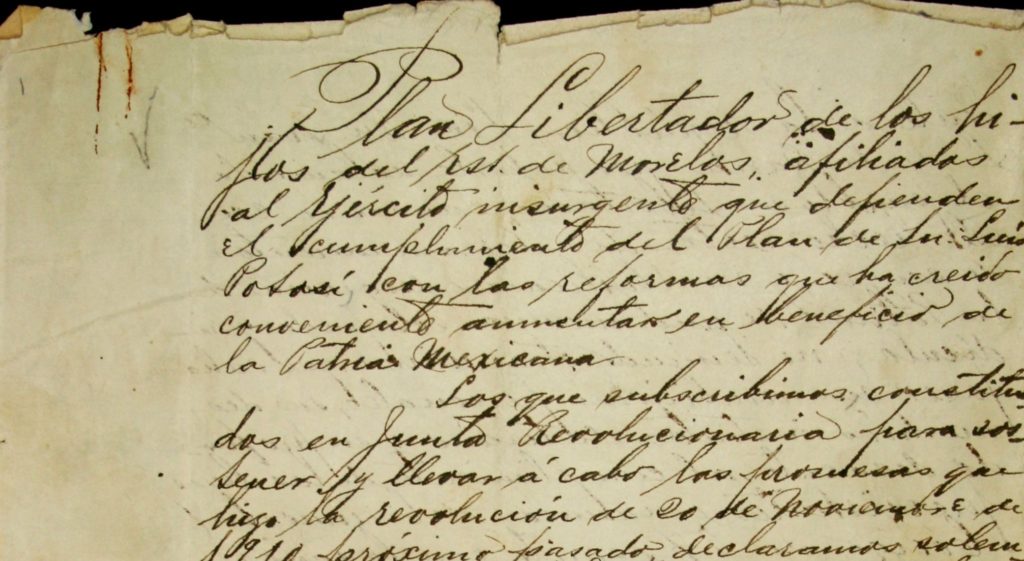 Plan Libertador de los hi-
jos del Est. de Morelos, afiliados
al Ejército insurgente que defienden
el cumplimiento del Plan de Sn. Luis
Potosí, con las reformas que ha creido
conveniente aumentar en beneficio de
la Patria Mexicana.
Los que subscribimos, constitui
dos en Junta Revolucionaria para sos-
tener y llevar á cabo las promesas que
hizo la revolución de 20 de Noviembre de
1910 próximo pasado, declaramos solem